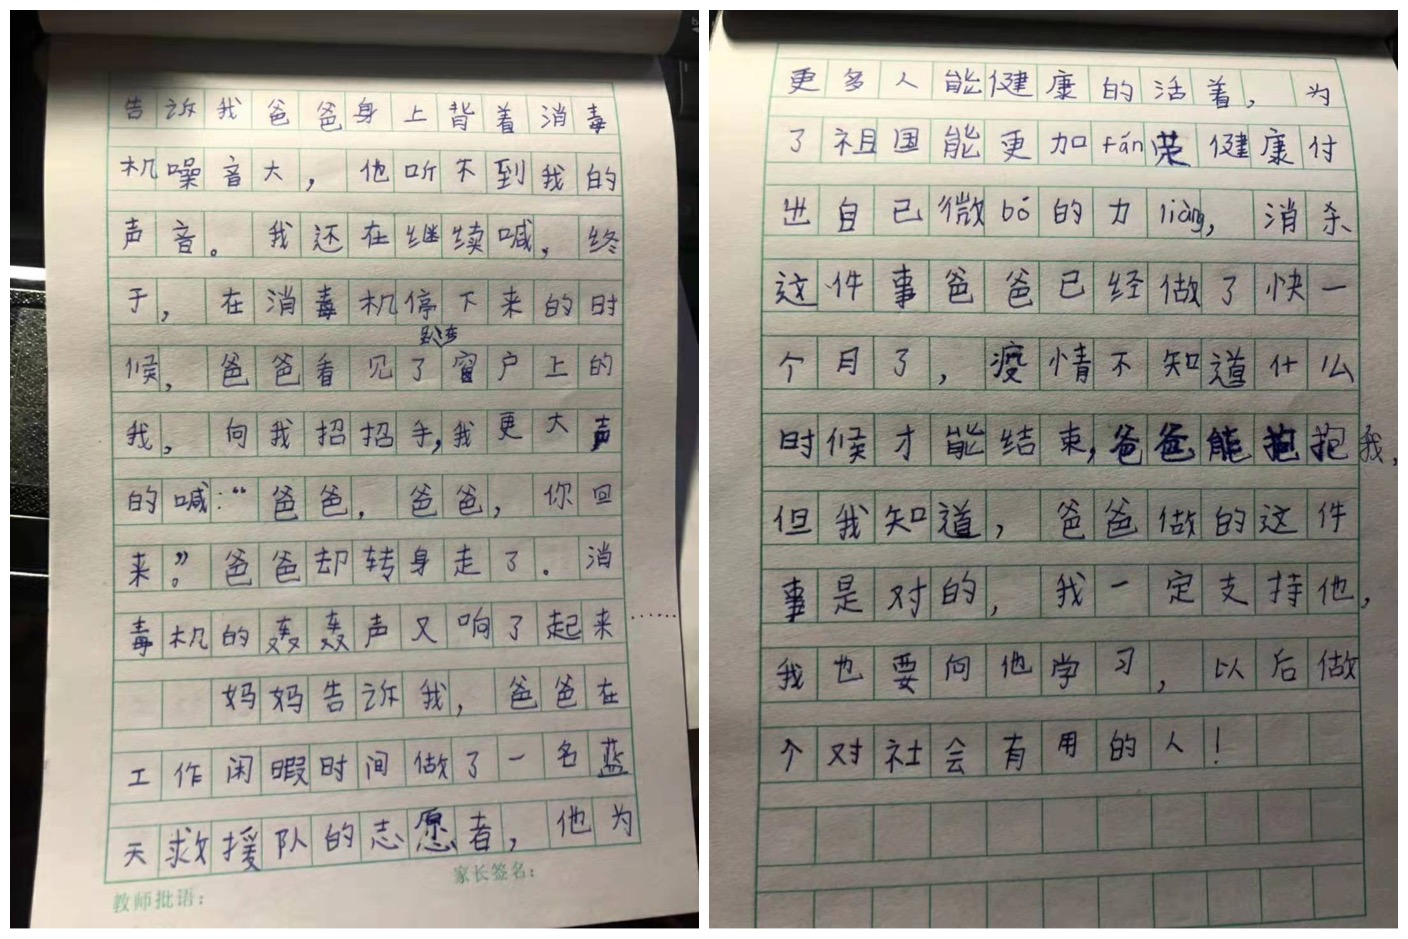 告诉我爸爸身上背着消毒
机噪音大，他听不到我的
声音。我还在继续喊，终
于，在消毒机停下来的时
候，爸爸看见了趴在窗户上的
我，向我招招手，我更大声
的喊：“爸爸，爸爸，你回
来”。爸爸却转身走了。消
毒机的轰轰声又响了起来……
妈妈告诉我，爸爸在
工作闲暇时间做了一名蓝
天救援队的志愿者，他为
教师批语：
家长签名：
更多人能健康的活着，为
了祖国能更加fán荣健康付
出自己微bó的力liàng，消杀
这件事爸爸已经做了快一
个月了，疫情不知道什么
时候才能结束，爸爸能抱抱我，
但我知道，爸爸做的这件
事是对的，我一定支持他，
我也要向他学习，以后做
个对社会有用的人！